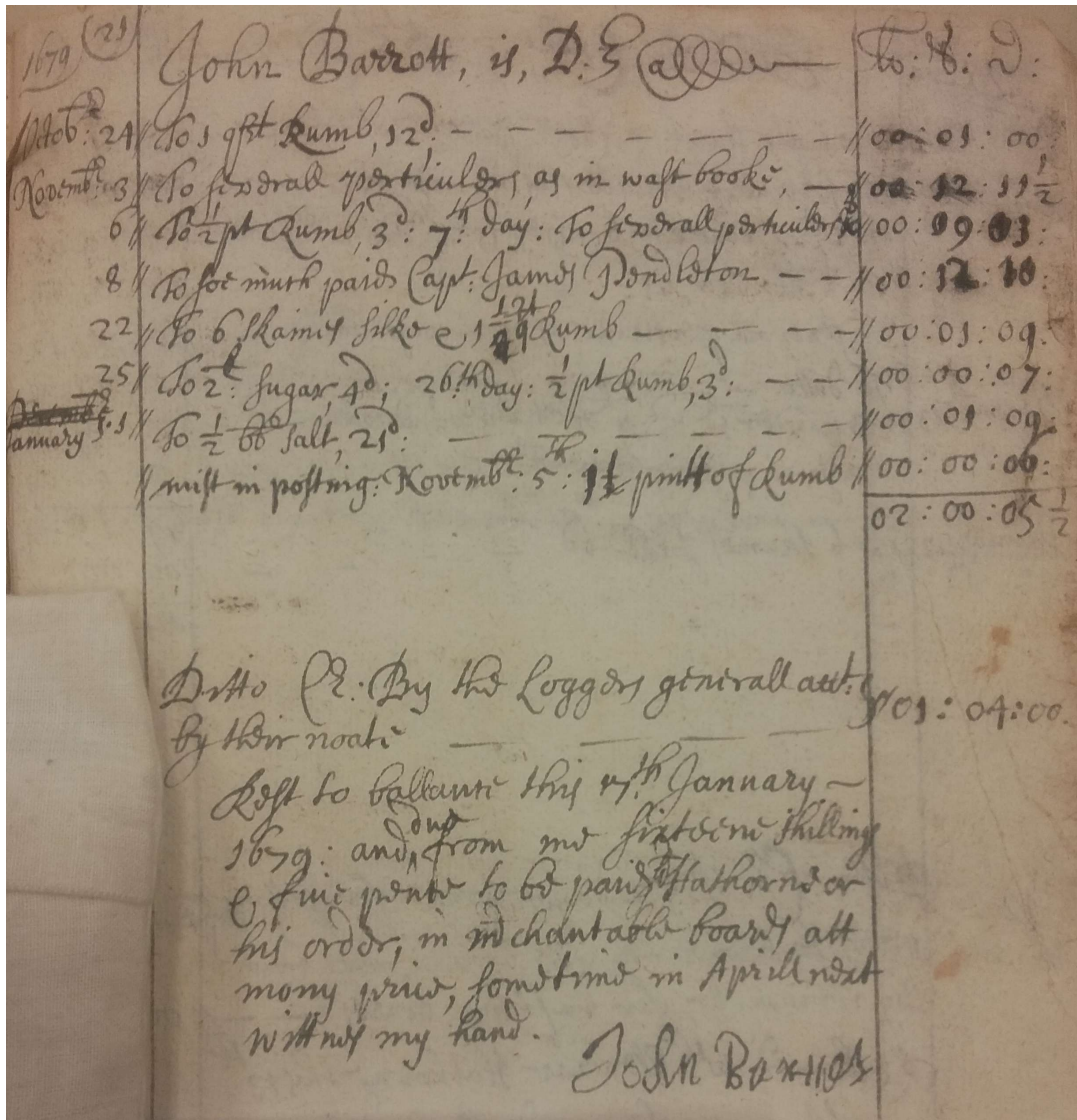 1679 (21) John Barrott, is, Dr lb: s: d:
Octobr: 24 // To 1 qrt Rumb, 12d: // 00:01:00
Novembr: 3 // To severall perticulers, as in wast booke, // 00:12:11 1/2
6 // To 1/2 pt Rumb, 3d: 7th: day: To severall perticulers // 00:09:03:
8 // To soe much paid Capt: James Pendleton // 00:12:10:
22 // To 6 skaines silke & 1 Rumb // 00:01:09:
25 // To 2l: sugar, 4d; 26th: day: 1/2 pt Rumb, 3d: // 00:00:07:
January 1 // To 1/2 bb salt, 21d: // 00:01:09:
// mist in posting: Novembr: 5th: pints of Rumb // 00:00:09:
02:00:05 1/2
Ditto Cr: By the Loggers generall acct:
by their noate // 01:04:00.
Rest to ballance this January
1679: and, due from me sixteene shillings
& five pence to be paid Hathorne or
his order, in merchantable boards att
mony price, sometime in Aprill next
wittnes my hand.
John Barrett